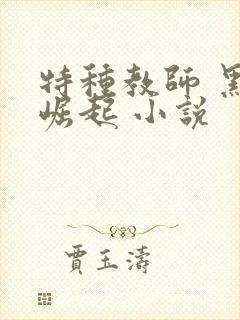 特種教師 黑
崛起 小說
賈玉濤